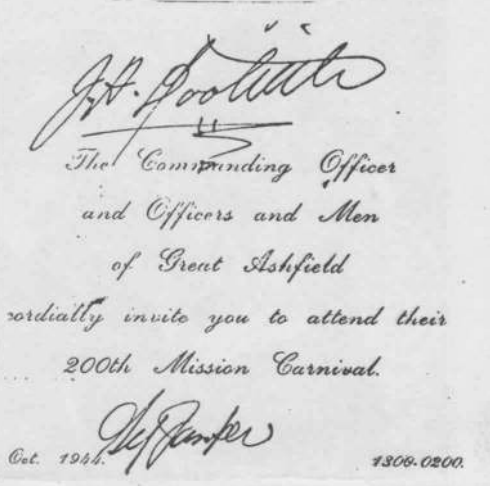 J. H. Doolittle
The Commanding Officer
and Officers and Men
of Great Ashfield
cordially invite you to attend their
200th Mission Carnival.
Oct. 1944.
1300-0200.